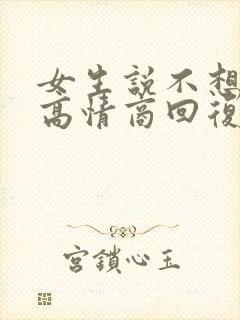 女生説不想
高情商回復
宮鎖心玉